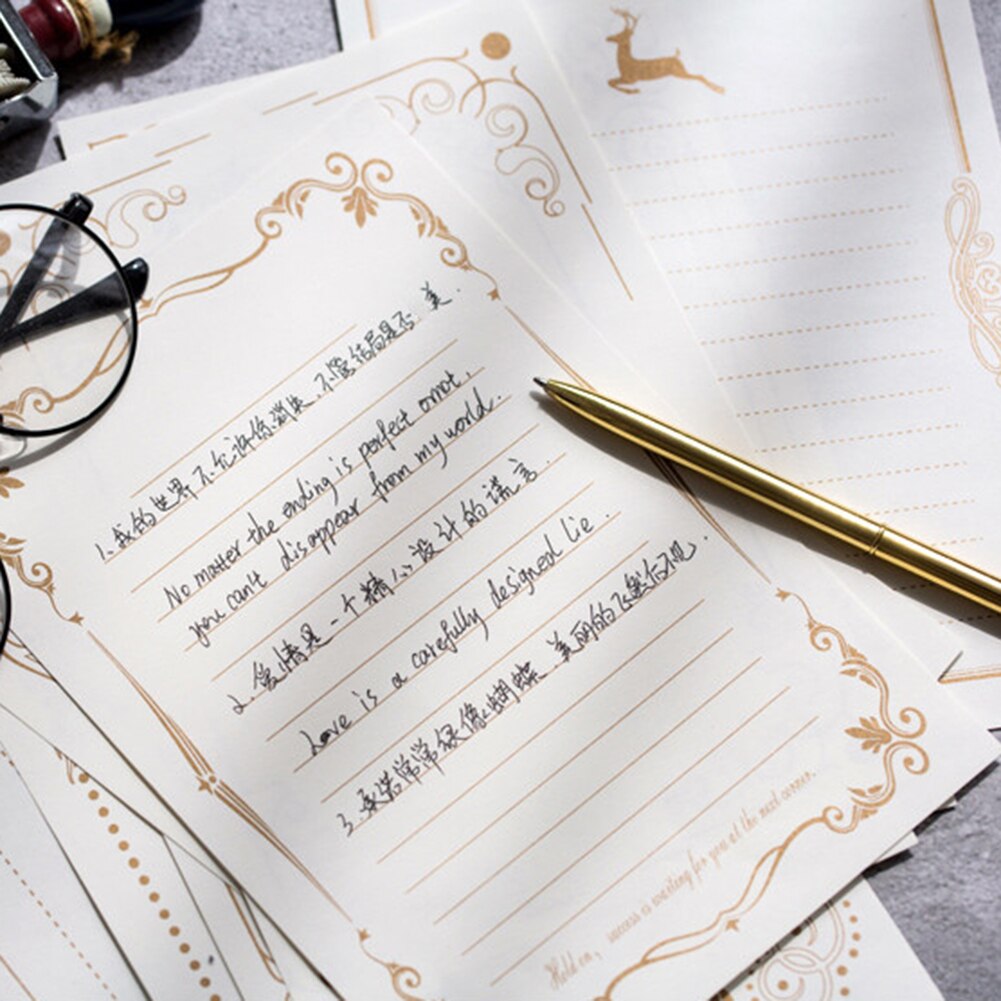 1. 我的世界不允许你消失, 不管结局是否 美.
No matter the ending is perfect ornot,
you can't disappear from my world.
2. 爱情是一个精心设计的谎言.
Love is a carefully designed lie.
3. 承诺常常很像蝴蝶, 美丽的飞
Hold on, success is waiting for you at the next corner.